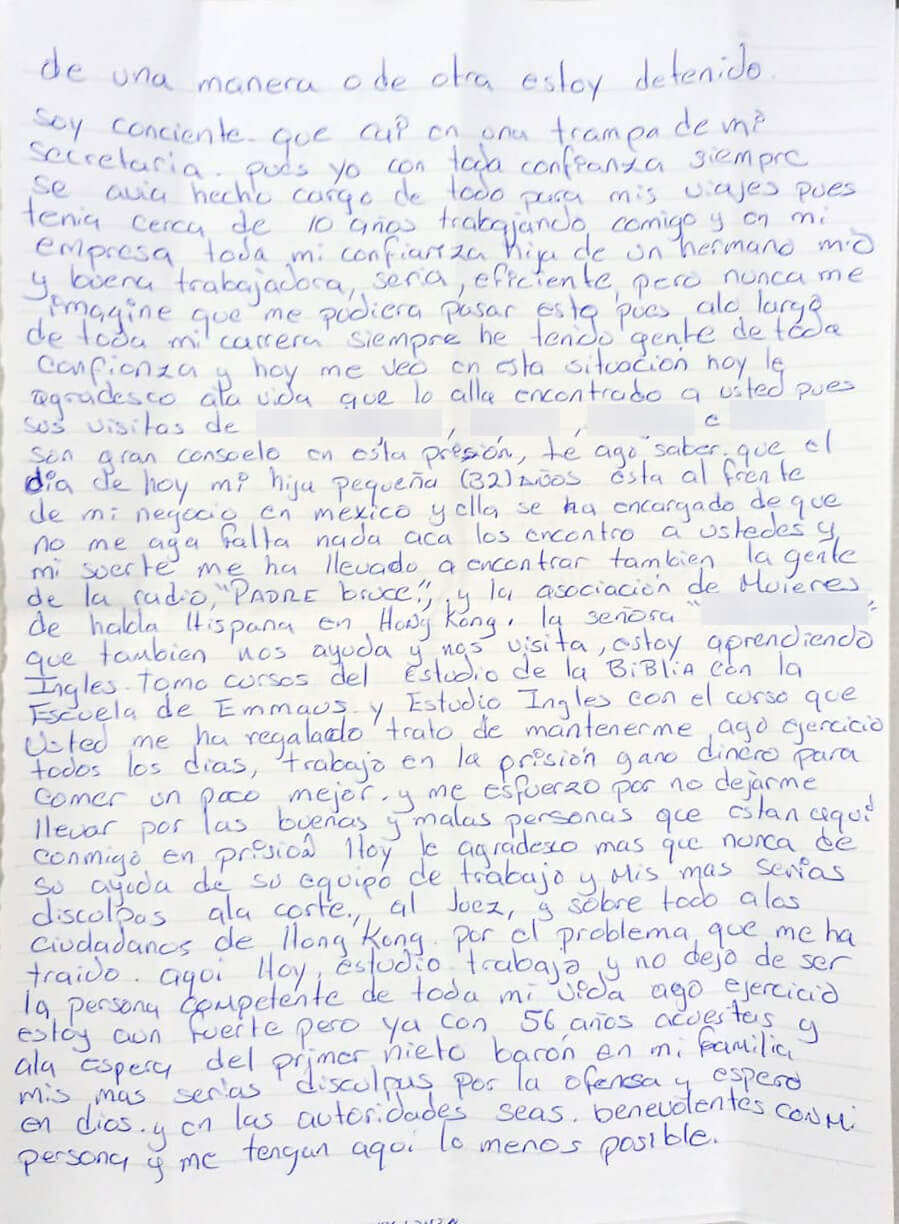 de una manera o de otra estoy detenido.
Soy conciente. que caí en una trampa de mi
secretaria. pues yo con toda confianza siempre
se avia hecho cargo de todo para mis viajes pues
tenia cerca de 10 años trabajando comigo y en mi
empresa toda mi confianza hija de un hermano mio
y buena trabajadora, seria, eficiente, pero nunca me
imagine que me pudiera pasar esto pues alo largo
de toda mi carrera siempre he tenido gente de toda
confianza y hoy me veo en esta situación hoy le
agradesco ala vida que lo alla encontrado a usted pues
sus visitas de , , e
son gran consuelo en esta presión, te ago saber. que el
día de hoy mi hija pequeña (32) años esta al frente
de mi negocio en mexico y ella se ha encargado de que
no me aga falta nada aca los encontro a ustedes y
mi suerte me ha llevado a encontrar tambien la gente
de la radio, "PADRE bruce", y la asociación de Mujeres
de habla Hispana en Hong Kong. la señora " "
que tambien nos ayuda y nos visita, estoy aprendiendo
Ingles. tomo cursos del estudio de la BiBLiA con la
Escuela de Emmaus. y Estudio Ingles con el curso que
Usted me ha regalado trato de mantenerme, ago ejercicio
todos los dias, trabajo en la prisión gano dinero para
comer un poco mejor. y me esfuerzo por no dejarme
llevar por las buenas y malas personas que estan aqui
conmigo en prision Hoy le agradezco mas que nunca de
su ayuda de su equipo de trabajo y Mis mas serias
disculpas ala corte., al Juez, y sobre todo alos
ciudadanos de Hong Kong. por el problema que me ha
traido. aqui Hoy, estudio. trabajo, y no dejo de ser
la persona competente de toda mi vida ago ejercicio
estoy aun fuerte pero ya con 56 años acuestas y
ala espera del primer nieto barón en mi familia
mis mas serias disculpas por la ofensa y espero
en dios. y en las autoridades seas. benevolentes con Mi
persona y me tengan aqui lo menos posible.